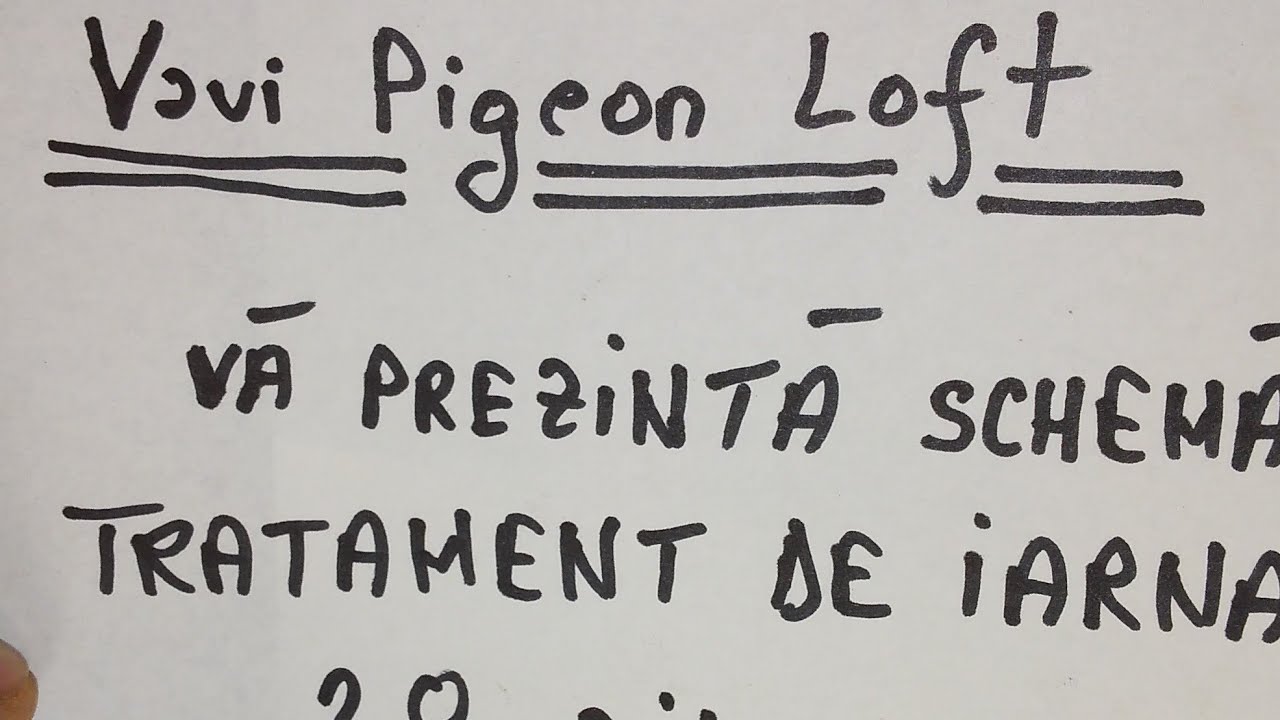 Vavi Pigeon Loft
VĀ PREZiNTĀ SCHEMĀ
TRATAMENT DE iARNA